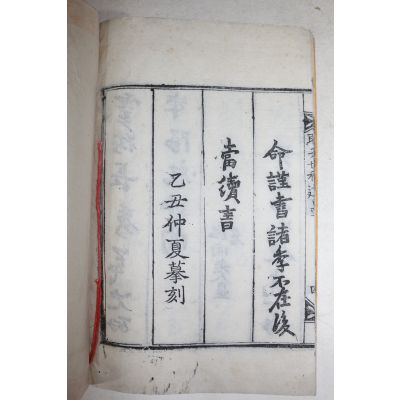 命謹書諸季不在後
當續書
乙丑仲夏摹刻